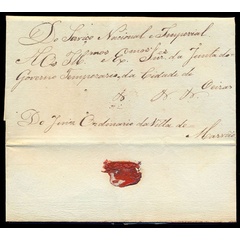 Do Serviço Nacional e Imperial
A os Ill.mos e Ex.mos Snr.s da Junta do
Governo Temporario da Cidade de
Oeiras
Do Juiz Ordinario da Villa de
Marvão